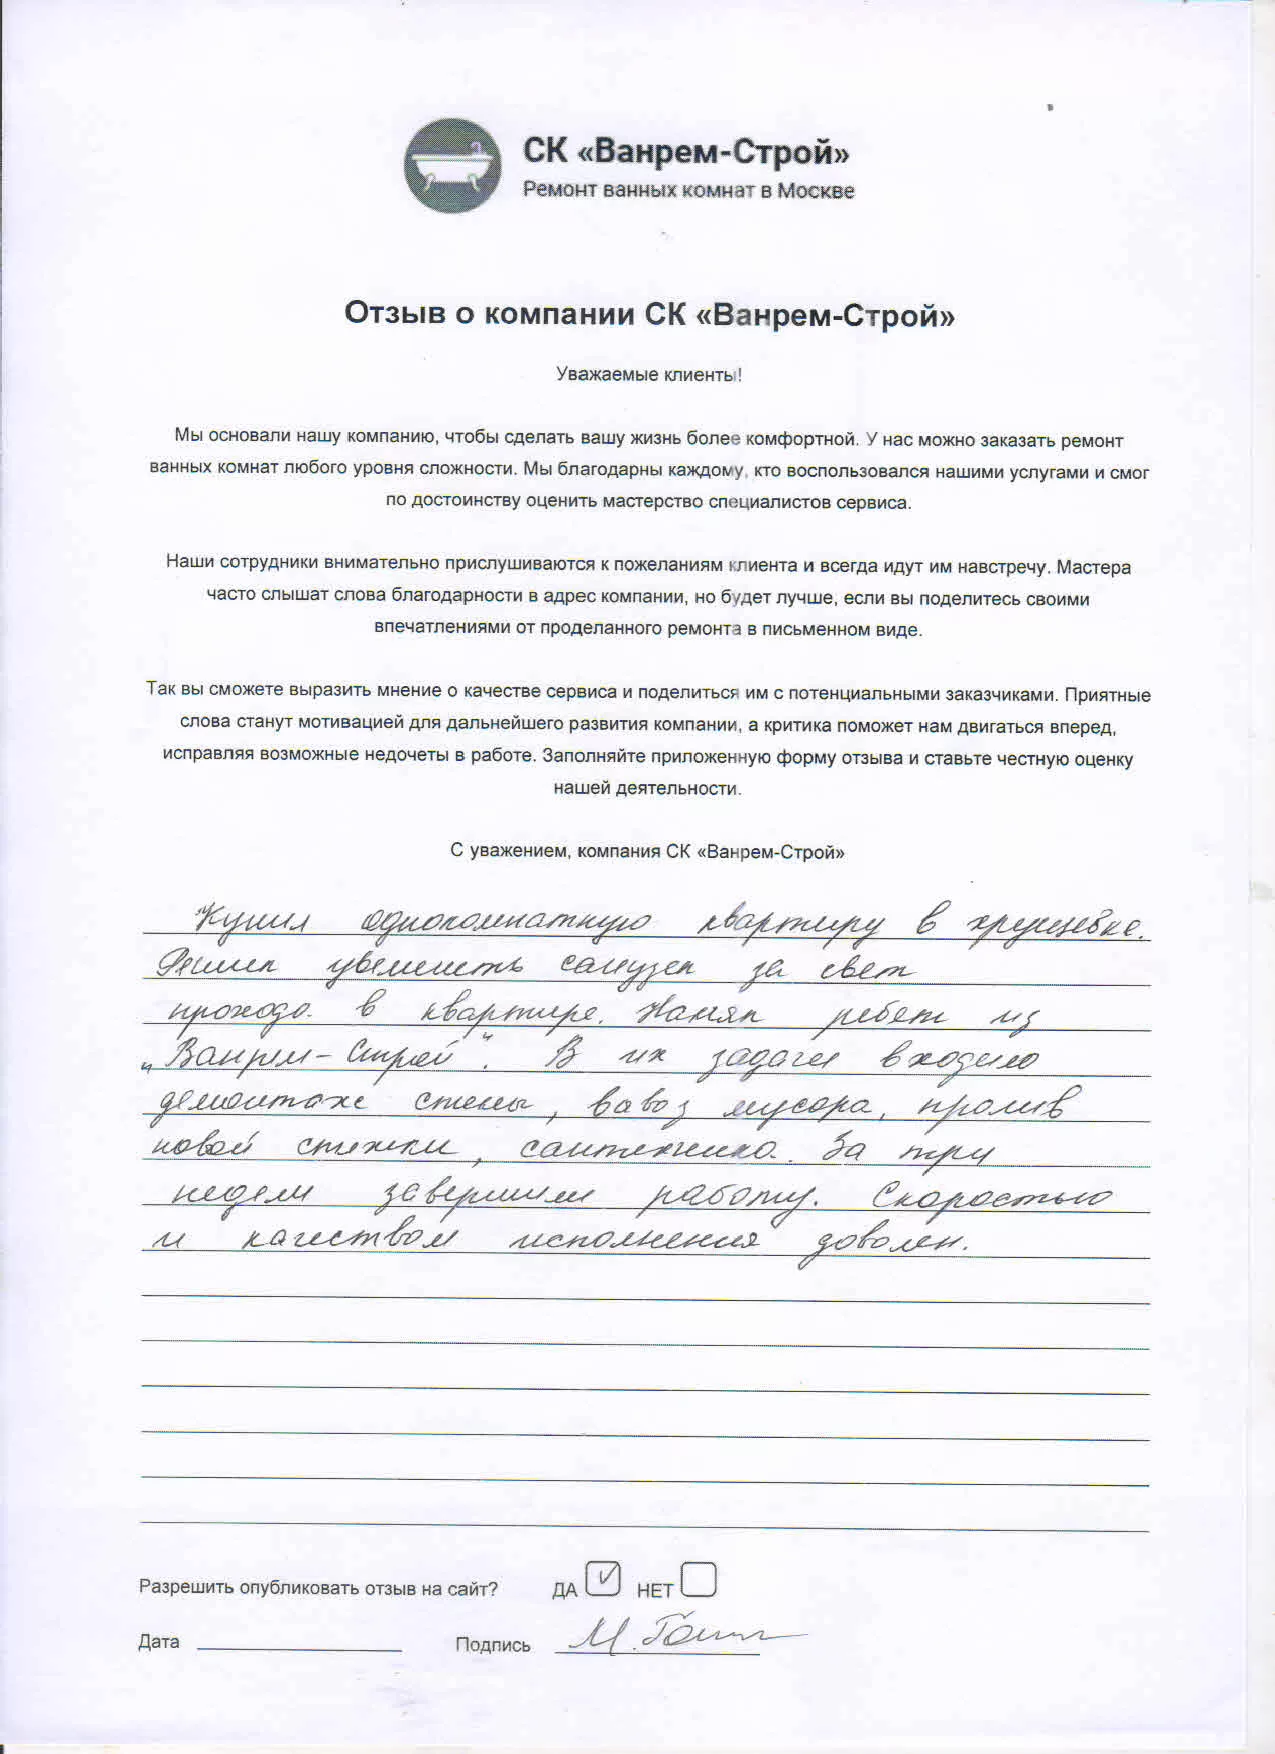 СК «Ванрем-Строй»
Ремонт ванных комнат в Москве
Отзыв о компании СК «Ванрем-Строй»
Уважаемые клиенты!
Мы основали нашу компанию, чтобы сделать вашу жизнь более комфортной. У нас можно заказать ремонт
ванных комнат любого уровня сложности. Мы благодарны каждому, кто воспользовался нашими услугами и смог
по достоинству оценить мастерство специалистов сервиса.
Наши сотрудники внимательно прислушиваются к пожеланиям клиента и всегда идут им навстречу. Мастера
часто слышат слова благодарности в адрес компании, но будет лучше, если вы поделитесь своими
впечатлениями от проделанного ремонта в письменном виде.
Так вы сможете выразить мнение о качестве сервиса и поделиться им с потенциальными заказчиками. Приятные
слова станут мотивацией для дальнейшего развития компании, а критика поможет нам двигаться вперед,
исправляя возможные недочеты в работе. Заполняйте приложенную форму отзыва и ставьте честную оценку
нашей деятельности.
С уважением, компания СК «Ванрем-Строй»
Купил однокомнатную квартиру в хрущевке.
Решил увеличить санузел за счет
прохода в квартире. Нанял ребят из
„Ванрем-Строй". В их задачи входило
демонтаж стены, вывоз мусора, пролив
новой стяжки, сантехника. За три
недели завершили работу. Скоростью
и качеством исполнения доволен.
Разрешить опубликовать отзыв на сайт? ДА НЕТ
Дата Подпись